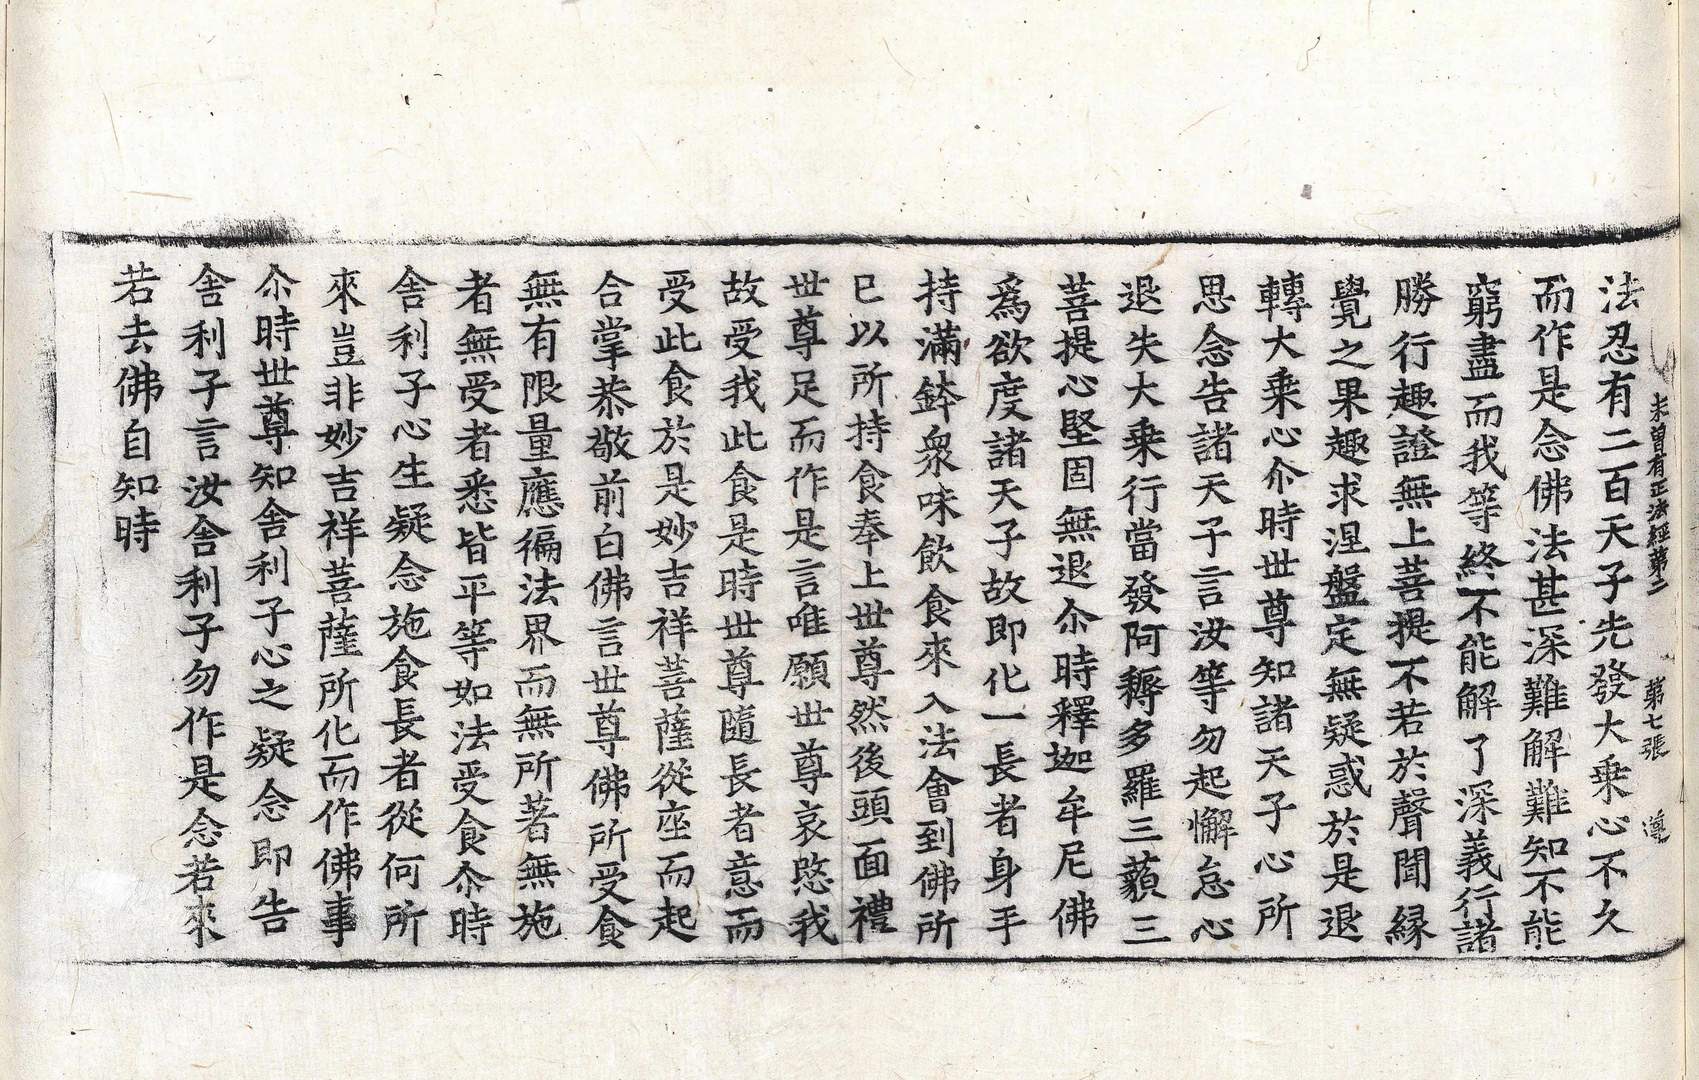 未曾有正法經第二　第七張　遵
法忍有二百天子先發大乗心不久
而作是念佛法甚深難解難知不能
窮盡而我等終不能解了深義行諸
勝行趣證無上菩提不若於聲聞縁
覺之果趣求涅盤定無疑惑於是退
轉大乗心尒時世尊知諸天子心所
思念告諸天子言汝等勿起懈怠心
退失大乗行當發阿耨多羅三藐三
菩提心堅固無退尒時釋迦牟尼佛
爲欲度諸天子故即化一長者身手
持滿鉢衆味飲食來入法會到佛所
已以所持食奉上世尊然後頭面禮
世尊足而作是言唯願世尊哀愍我
故受我此食是時世尊隨長者意而
受此食於是妙吉祥菩薩從座而起
合掌恭敬前白佛言世尊佛所受食
無有限量應徧法界而無所著無施
者無受者悉皆平等如法受食尒時
舎利子心生疑念施食長者從何所
來豈非妙吉祥菩薩所化而作佛事
尒時世尊知舎利子心之疑念即告
舎利子言汝舎利子勿作是念若來
若去佛自知時